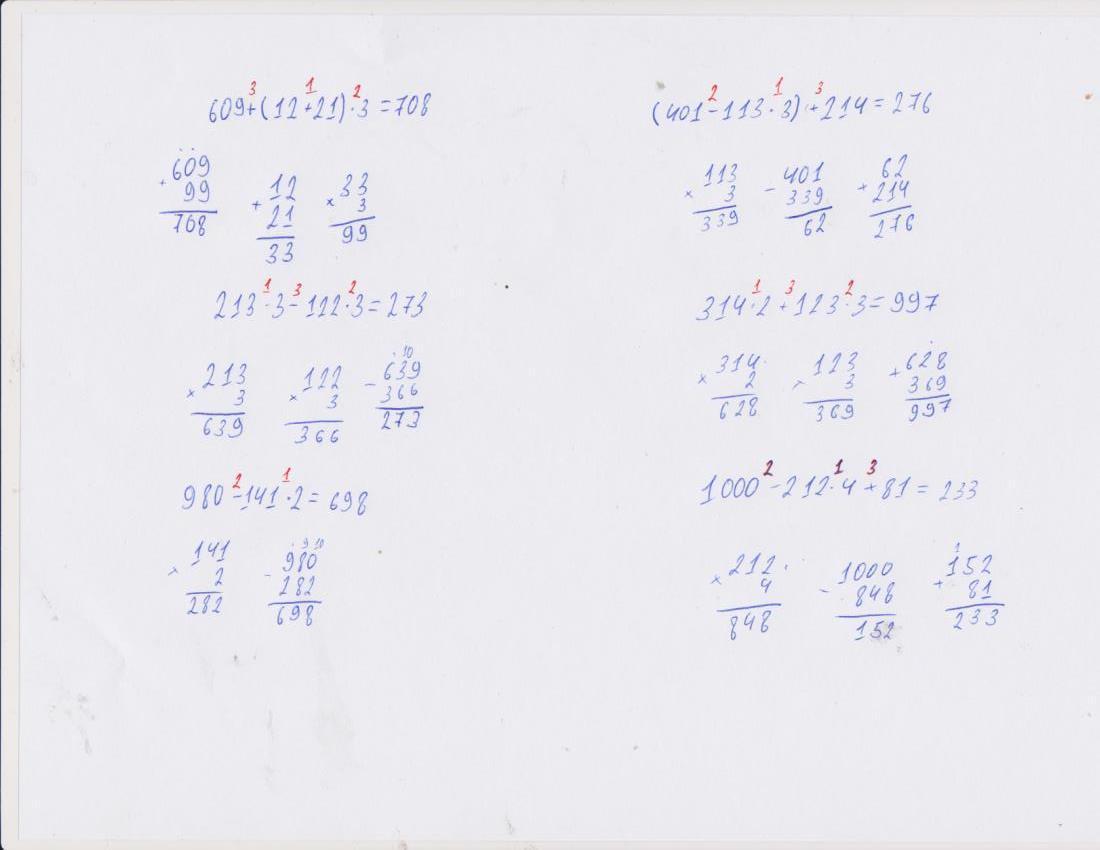 3 1 2
609+(12+21)·3=708
609
+ 99
708
+ 12
21
33
× 33
3
99
1 3 2
213·3-122·3=273
× 213
3
639
× 122
3
366
10
- 639
366
273
2 1
980-141·2=698
× 141
2
282
9 10
- 980
282
698
2 1 3
(401-113·3)+214=276
× 113
3
339
- 401
339
62
+ 62
214
276
1 3 2
314·2+123·3=997
× 314
2
628
× 123
3
369
+ 628
369
997
2 1 3
1000-212·4+81=233
× 212
4
848
- 1000
848
152
1
+ 152
81
233